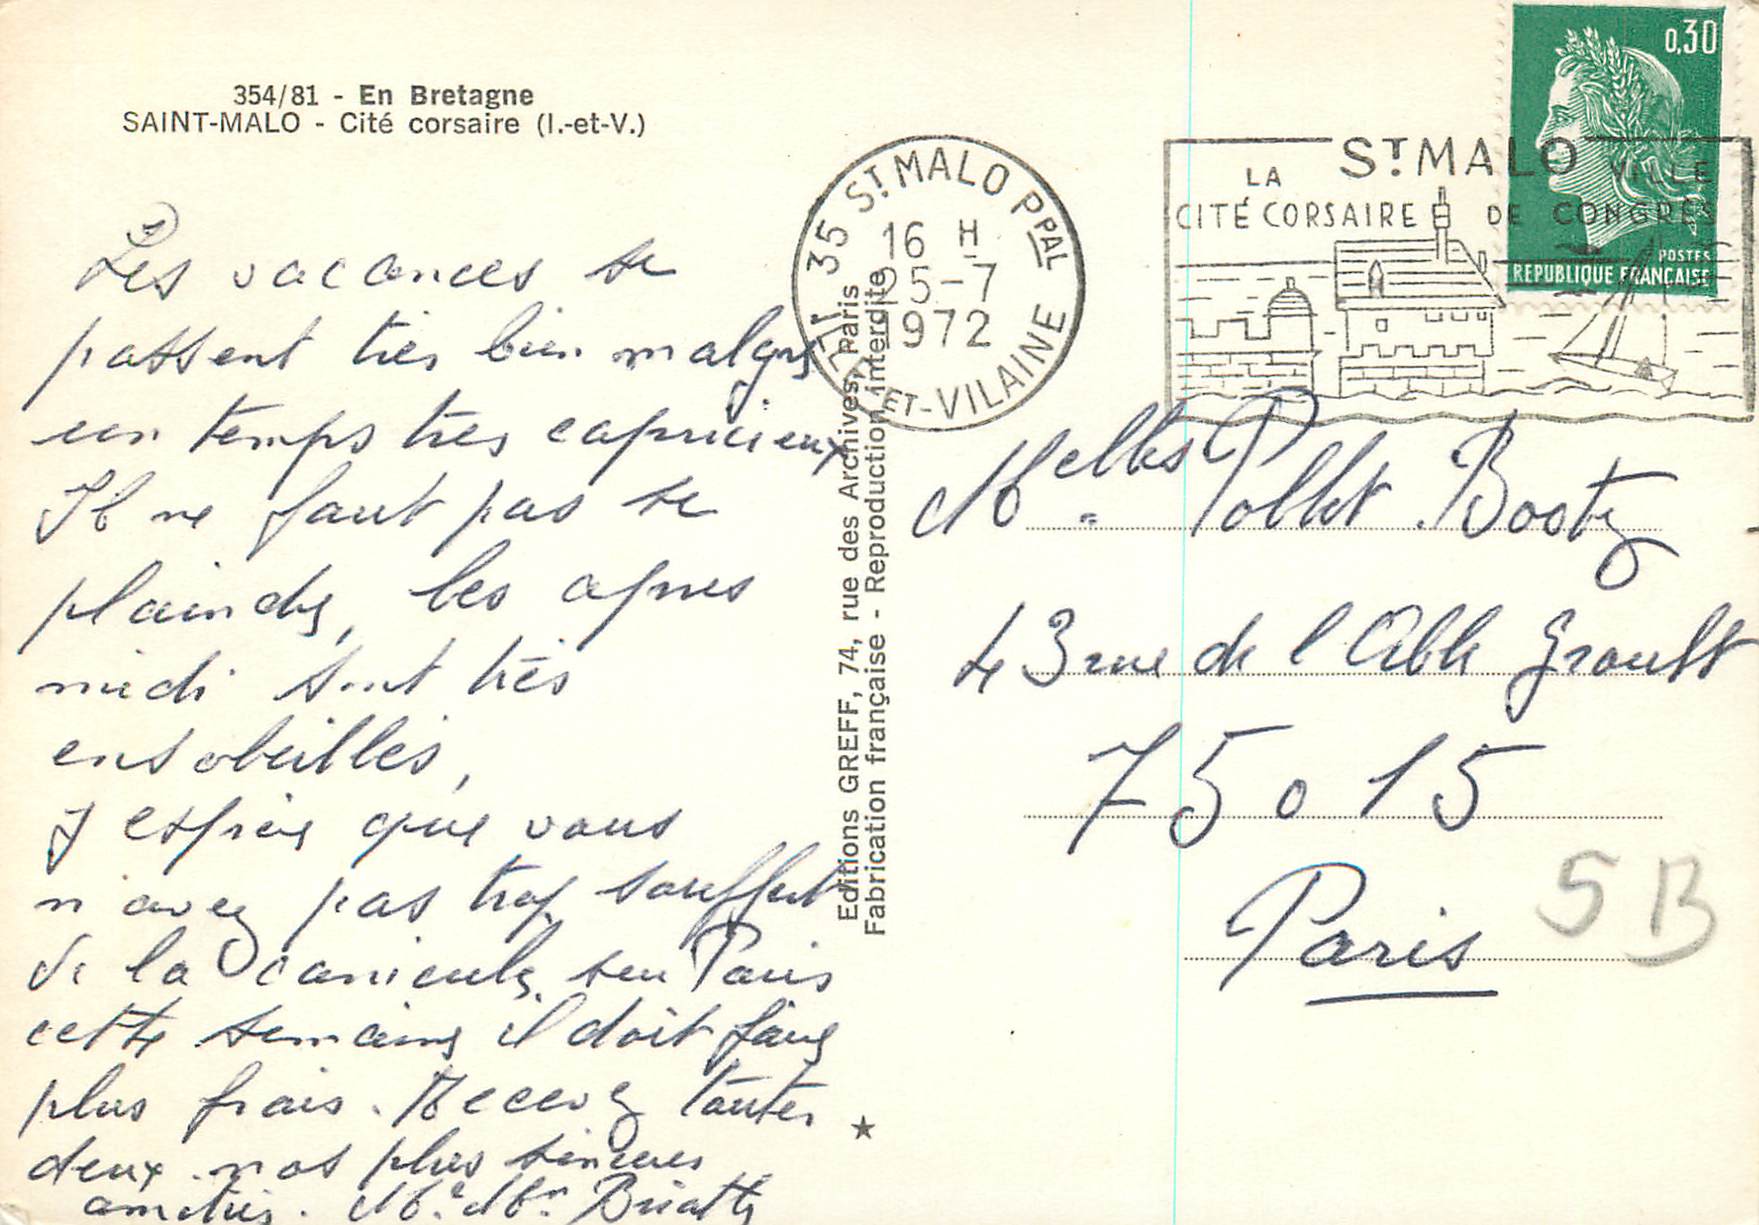 354/81 - En Bretagne
SAINT-MALO - Cité corsaire (I.-et-V.)
Les vacances se
passent très bien malgré
un temps très capricieux
Il ne faut pas se
plaindre, les après
midi sont très
ensoleillés,
J espère que vous
n avez pas trop souffert
de la canicule, sur Paris
cette semaine il doit faire
plus frais. Recevez toutes
deux nos plus sincères
amitiés. Me Mr
Editions GREFF, 74, rue des Archives, Paris
Fabrication française - Reproduction interdite
35 ST MALO PPAL
16 H
25-7
1972
ET-VILAINE
ST MALO
LA CITÉ CORSAIRE
VILLE DE CONGRÈS
0,30
POSTES
REPUBLIQUE FRANÇAISE
Melles Pollet
43 rue de l Abbé Groult
75015
Paris
5B